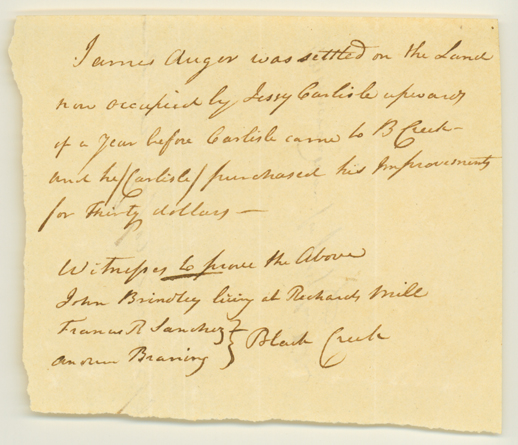 James Auger was settled on the Land
now occupied by Jessy Carlisle upwards
of a year before Carlisle came to B Creek —
and he /Carlisle/ purchased his Improvements
for Thirty dollars —
Witnesses to prove the Above
John Brindley living at Richards Mill
Francis R Sanchez } Black Creek
Andrew Braning }